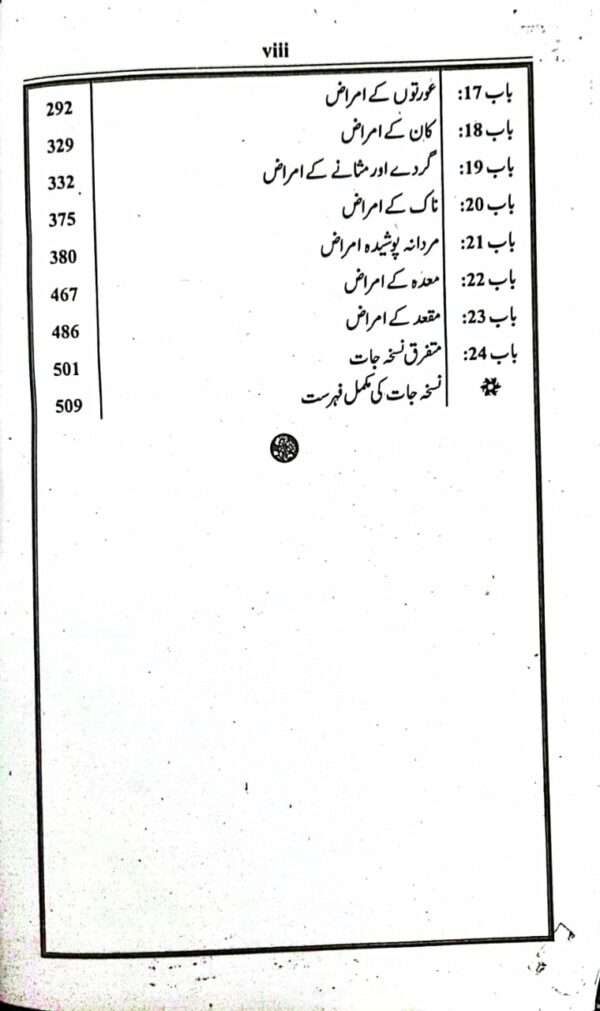 viii
باب 17: عورتوں کے امراض 292
باب 18: کان کے امراض 329
باب 19: گردے اور مثانے کے امراض 332
باب 20: ناک کے امراض 375
باب 21: مردانہ پوشیدہ امراض 380
باب 22: معدہ کے امراض 467
باب 23: مقعد کے امراض 486
باب 24: متفرق نسخہ جات 501
نسخہ جات کی مکمل فہرست 509